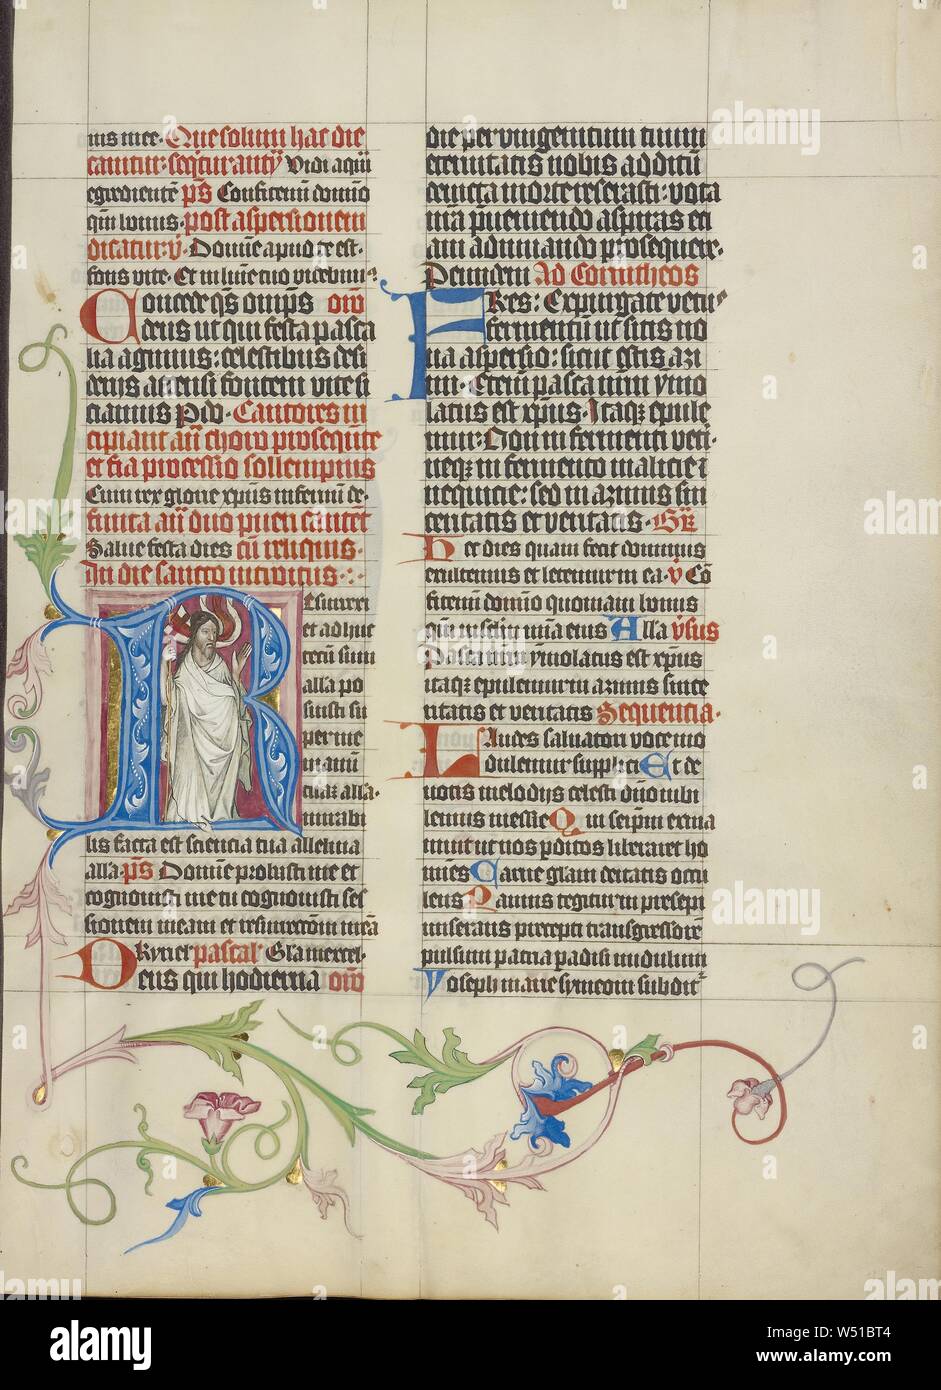 nis mee. Que solum hac die
cantitur. seqtur añ Vidi aquā
egrediente ps Confitemi domino
qm bonus. post aspersionem
dicatur. v. Domine apud te est
fons vite. Et in lumine tuo videbimus
Concede qs omps orō
deus ut qui festa pasca
lia agimus: celestibus desi
deriis accensi fontem vite si
ciamus P do. Cantores in
cipiant añ choro prosequente
et fia processio sollempnis
Cum rex glorie xpus infernū de.
finita añ duo pueri cantent
Salue festa dies cū reliquis.
In die sancto introitus.
Resurrexi
et adhuc
tecum sum
alla po
suisti su
per me
manū
tuā alla.
mirabi
lis facta est sciencia tua alleluia
alla. ps Domine probasti me et
cognouisti me tu cognouisti ses
sionem meam et resurrectōm meā
Kyriel pascal Gla in excel.
Deus qui hodierna orō
die per vnigenitum tuum
eternitatis nobis aditū
deuicta morte reserasti: vota
nrā pueniendo aspiras eti
am adiuuando prosequere.
Per eundem Ad Corintheos
Fres: Expurgate vetus
fermentū ut sitis no
ua aspersio: sicut estis azi
mi. Etenī pasca nrm ymo
latus est xpus. Itaqz epule
mur: Non in fermento veti.
neqz in fermento malicie ī
nequicie: sed in azimis sin
ceritatis et veritatis. Gr
Hec dies quam fecit dominus
exultemus et letemur in ea. v Cō
fitemī domino quoniam bonus
qm in sclm mia eius Alla vsus
Pasca nrm ymolatus est xpus
itaqz epulemur in azimis since
ritatis et veritatis Sequencia.
Laudes saluatori voce mo
dulemur supplici Et de
uotis melodijs celesti dno iubi
lemus messie Qui seipm exina
niuit ut nos pditos liberaret ho
mies Carne glam deitatis occu
lens Pannis tegitur in presepi
miserans precepti transgressorē
pulsum patria padisi nudulum
Ioseph marie symeoni subdit
alamy
Image ID: W51BT4
www.alamy.com